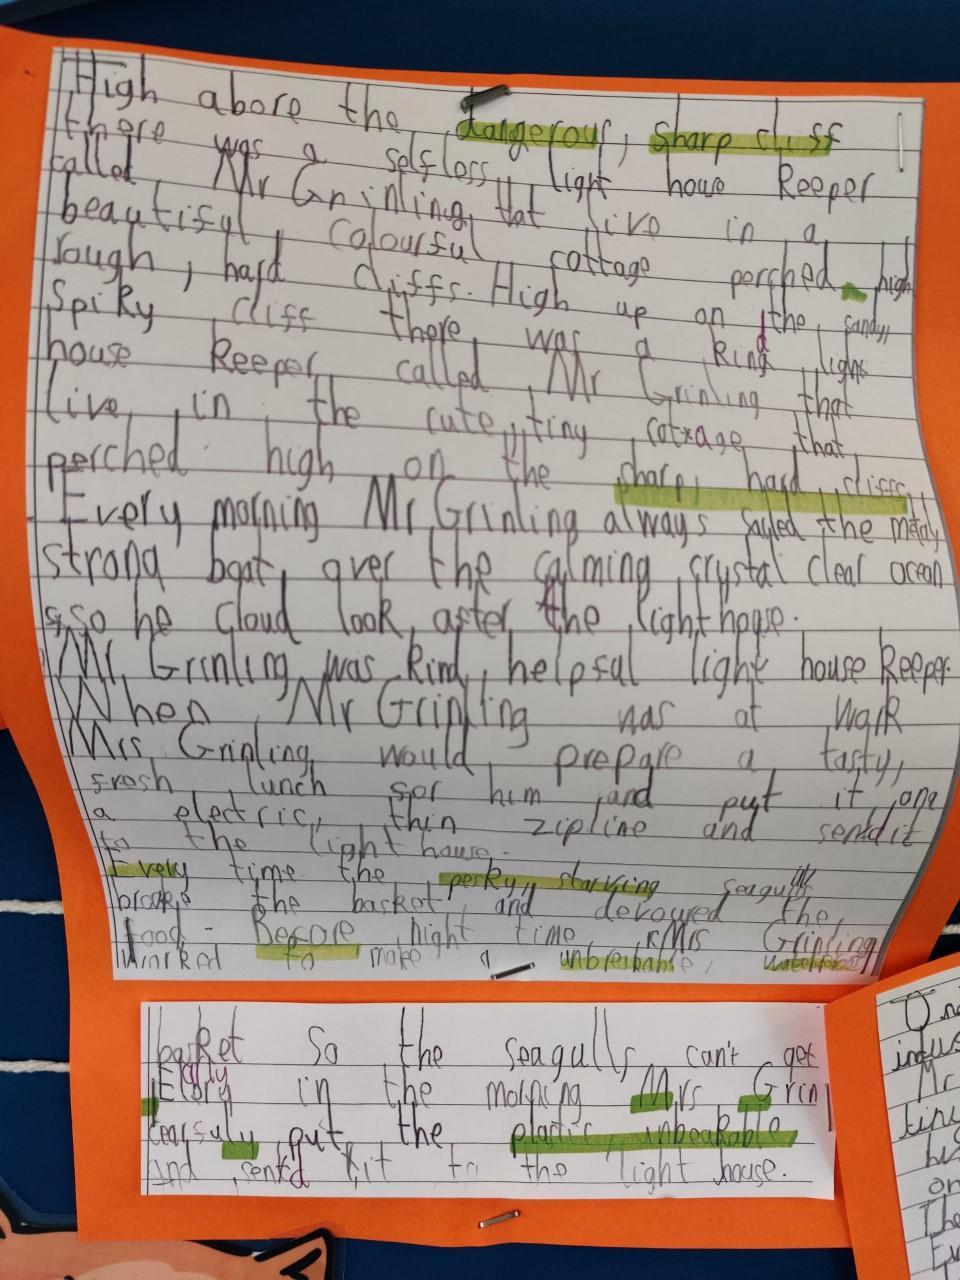 High above the dangerous, sharp cliff
there was a selfless, light house keeper
called Mr Grinling, that live in a
beautiful, colourful cottage perched high
rough, hard cliffs. High up on the, sandy,
spiky cliff there, was a kind, light
house keeper, called Mr Grinling that
live, in the cute, tiny cottage that,
perched high on the sharp, hard cliffs,
Every morning Mr Grinling always sayled the metaly
strong boat, over the calming, crystal clear ocean
so he cloud look, after the light house.
Mr Grinling was kind, helpful light house keeper.
When Mr Grinling was at work
Mrs Grinling, would prepare a tasty,
fresh lunch for him, and put it, one
a electric, thin zipline and send it
to the light house.
Every time the pesky, starving seagulls
brooke the basket, and devoured the,
food. Before night time Mrs Grinling
worked to make a unbreakable,
basket so the seagulls can't get
in the morning Mrs Grin
put, the plastic, unbeakable
and send it to the light house.
On
indus
Mr
on
The